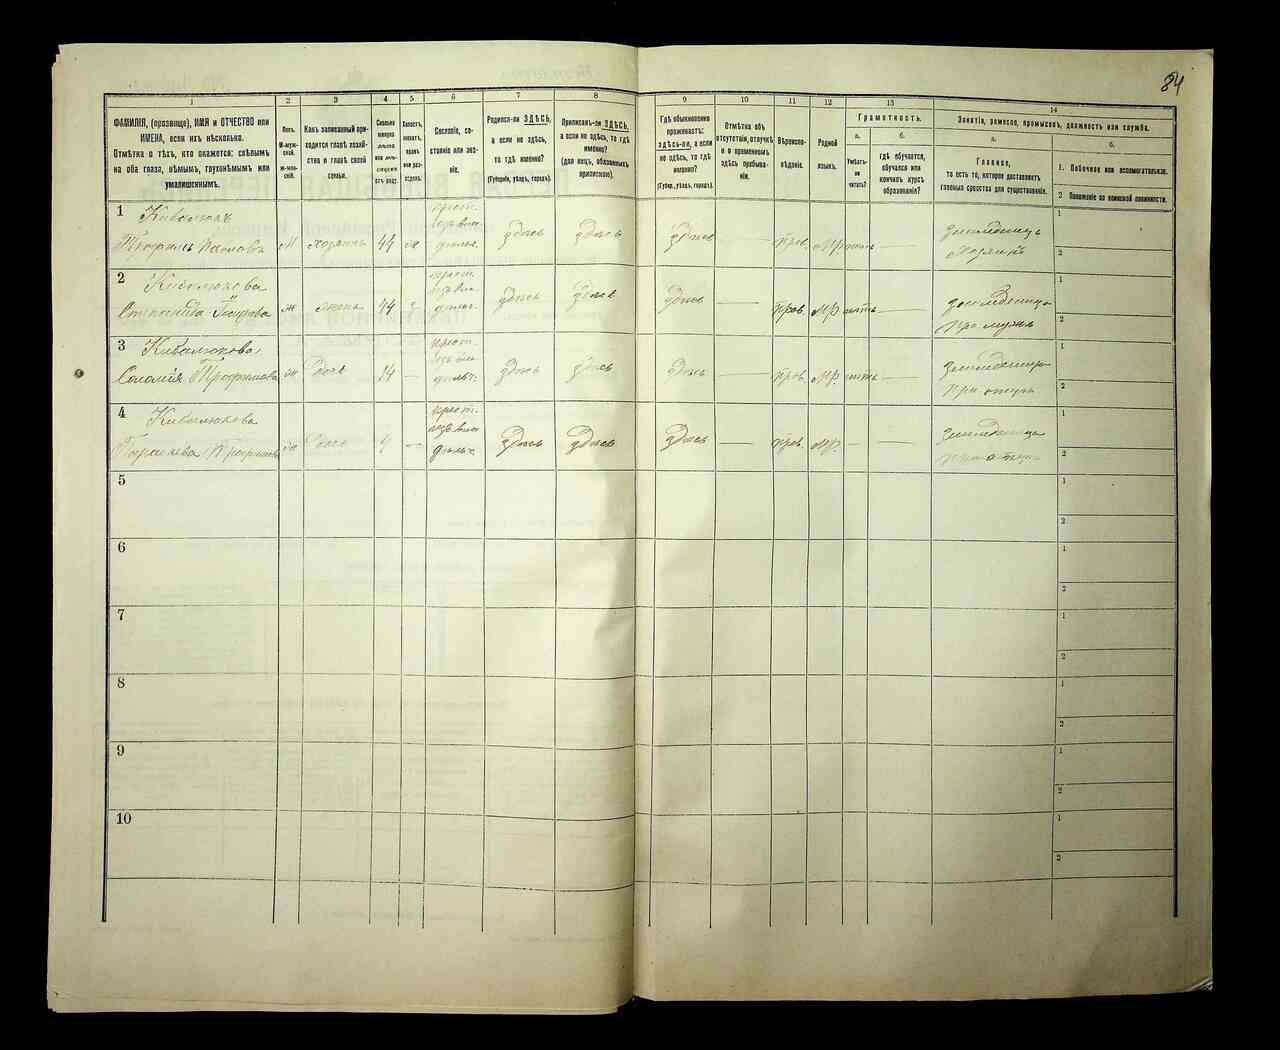 84
1 2 3 4 5 6 7 8 9 10 11 12 13 14
ФАМИЛІЯ, (прозвище), ИМЯ и ОТЧЕСТВО или
ИМЕНА, если ихъ нѣсколько.
Отмѣтка о тѣхъ, кто окажется: слѣпымъ
на оба глаза, нѣмымъ, глухонѣмымъ или
умалишеннымъ.
Полъ.
М-муж-
ской.
Ж-жен-
скій.
Какъ записанный при-
ходится главѣ хозяй-
ства и главѣ своей
семьи.
Сколько
минуло
лѣтъ
или мѣ-
сяцевъ
отъ роду.
Холостъ,
женатъ,
вдовъ
или раз-
веденъ.
Сословіе, со-
стояніе или зва-
ніе.
Родился-ли ЗДѢСЬ,
а если не здѣсь,
то гдѣ именно?
(Губернія, уѣздъ, городъ).
Приписанъ-ли ЗДѢСЬ,
а если не здѣсь, то гдѣ
именно?
(для лицъ, обязанныхъ
припискою).
Гдѣ обыкновенно
проживаетъ:
ЗДѢСЬ-ЛИ, а если
не здѣсь, то гдѣ
именно?
(Губер., уѣздъ, городъ).
Отмѣтка объ
отсутствіи, отлучкѣ
и о временномъ
здѣсь пребыва-
ніи.
Вѣроиспо-
вѣданіе.
Родной
языкъ.
Грамотность.
а.
Умѣетъ-
ли
читать?
б.
гдѣ обучается,
обучался или
кончилъ курсъ
образованія?
Занятіе, ремесло, промыселъ, должность или служба.
а.
Главное,
то есть то, которое доставляетъ
главныя средства для существованія.
б.
1. Побочное или вспомогательное.
2. Положеніе по воинской повинности.
1 Кивалюкъ
Трофимъ Павловъ М хозяинъ 44 ж здѣсь здѣсь здѣсь — прав. МР
Хозяинъ
1
2
2 Кивалюкова
Степанида ж жена 44 здѣсь здѣсь здѣсь — прав. МР —
при мужѣ
1
2
3 Кивалюкова
Соломія Трофимова ж дочь 14 — здѣсь здѣсь здѣсь — прав. МР —
при отцѣ
1
2
4 Кивалюкова
Параскева ж дочь — здѣсь здѣсь здѣсь — прав. МР — —
при отцѣ
1
2
5
1
2
6
1
2
7
1
2
8
1
2
9
1
2
10
1
2